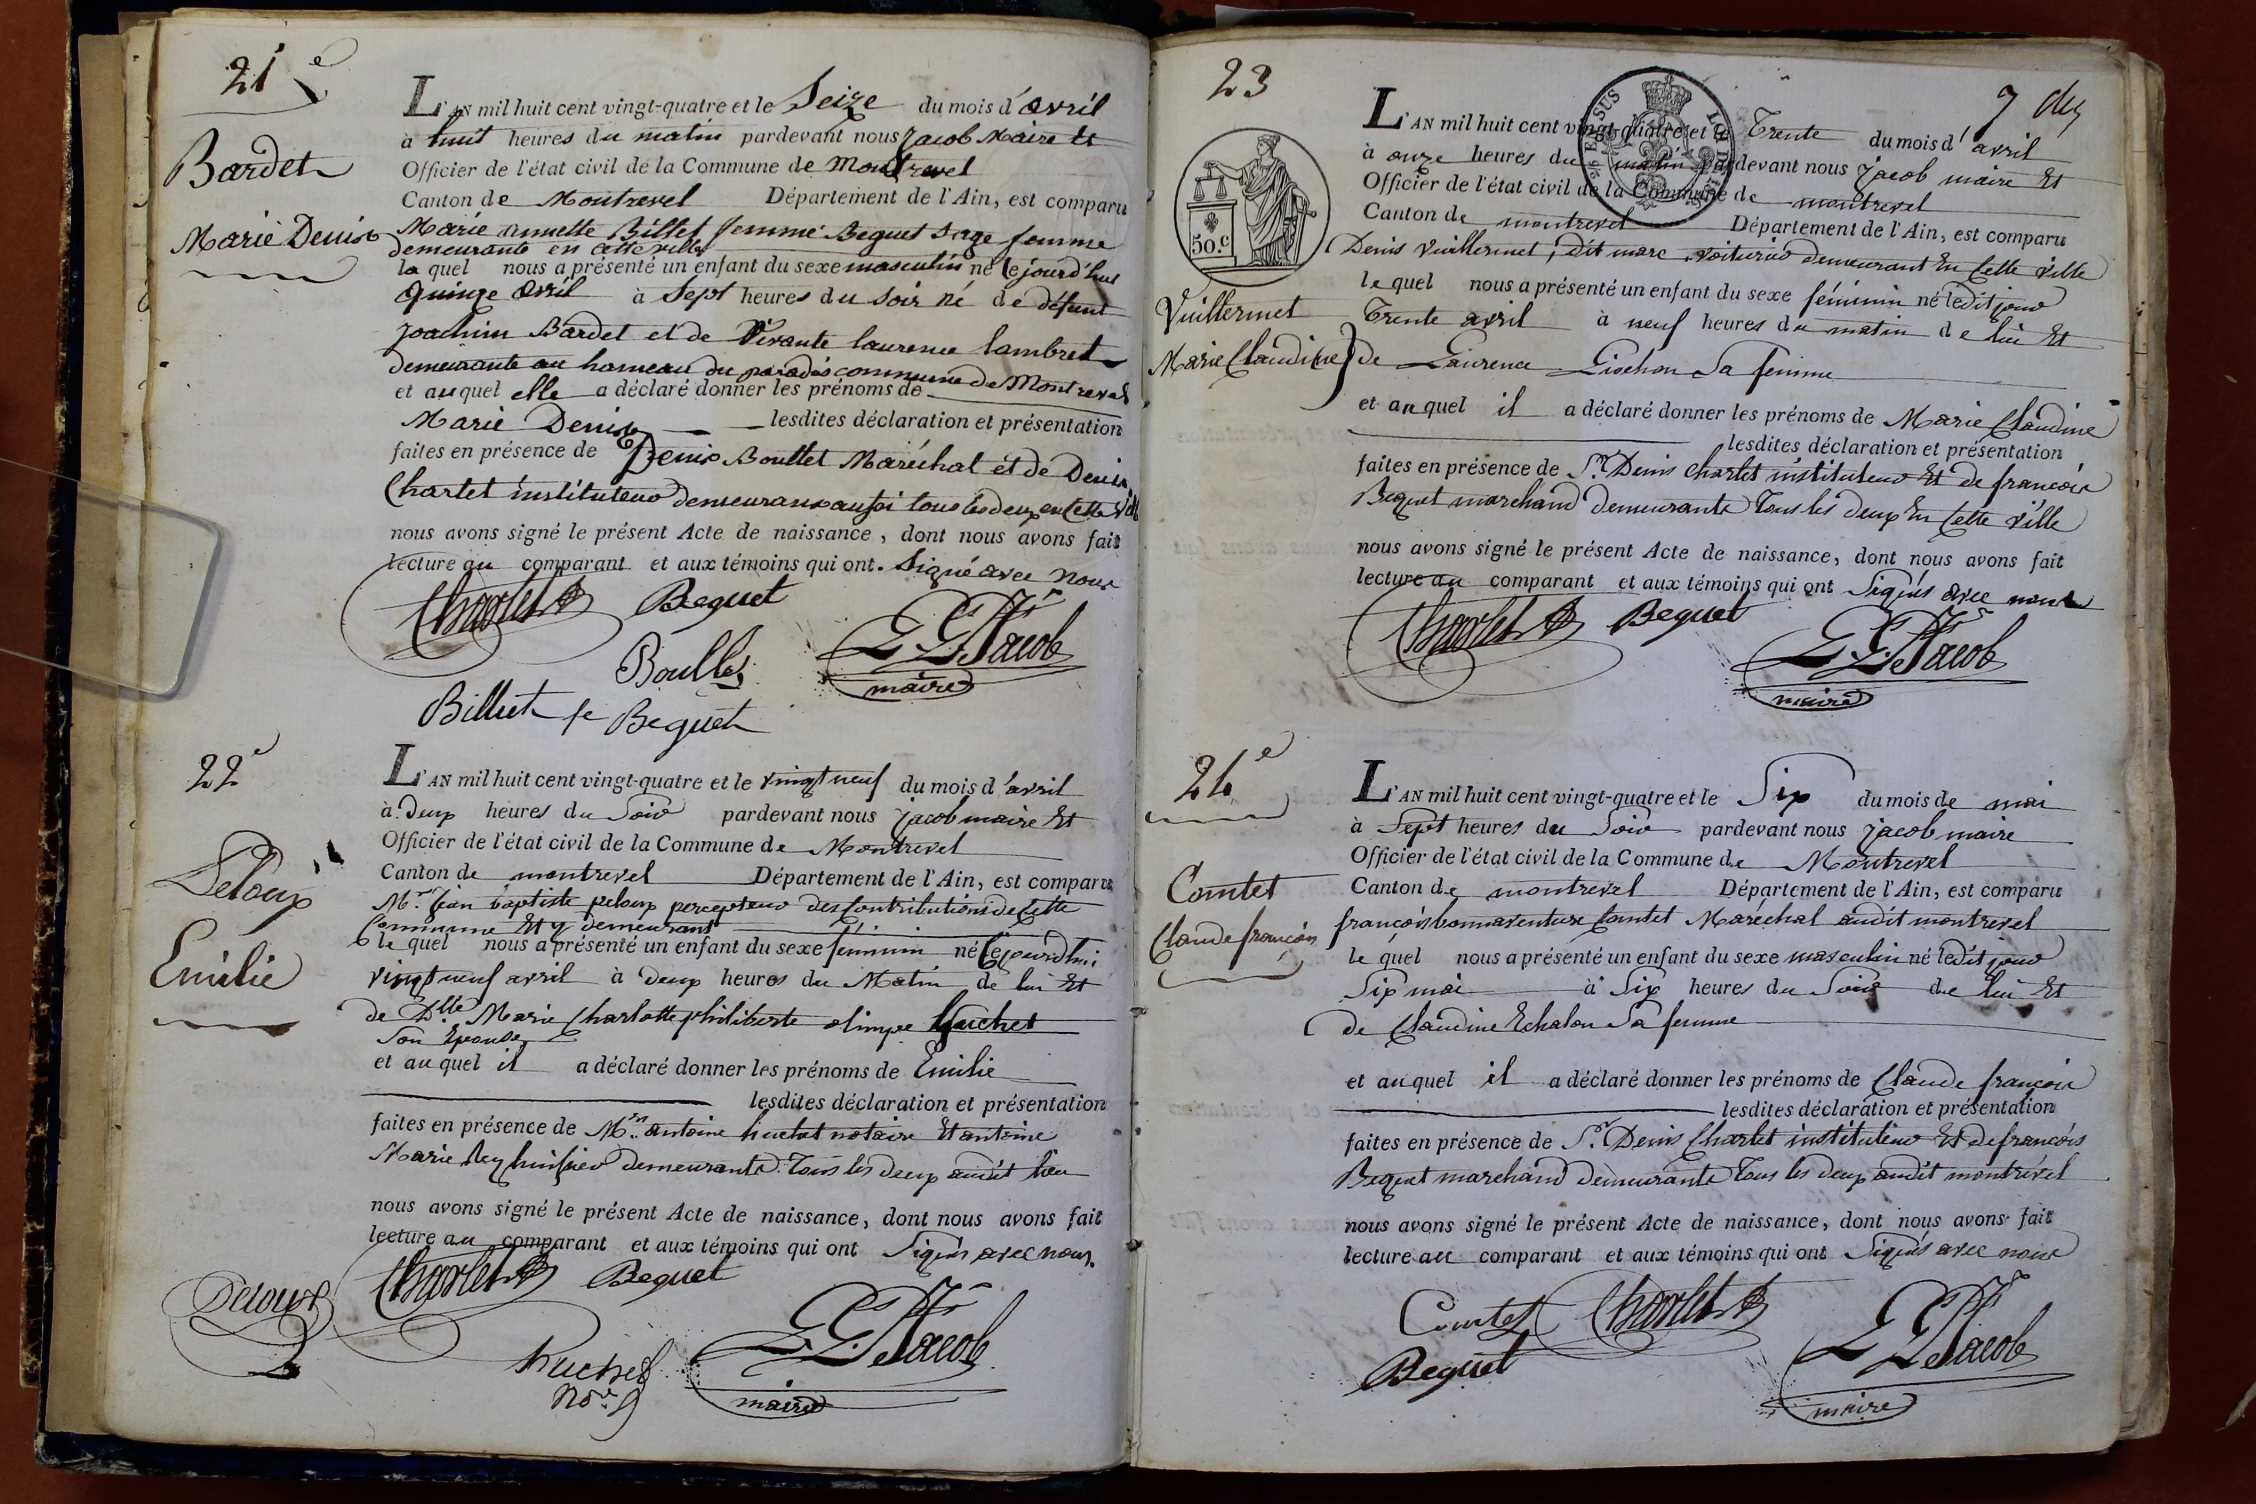 21e
Bardet
Marie Denise
L'AN mil huit cent vingt-quatre et le Seize du mois d'avril
à huit heures du matin pardevant nous Jacob Maire et
Officier de l'état civil de la Commune de Montrevel
Canton de Montrevel Département de l'Ain, est comparu
Marie annette Billet femme Beguet Sage femme
demeurante en cette ville
la quel nous a présenté un enfant du sexe masculin né le jourd'hui
quinze avril à Sept heures du Soir né de défunt
joachim Bardet et de Vivante laurence lambret
demeurante au hameau du paradis commune de Montrevel
et auquel elle a déclaré donner les prénoms de
Marie Denise lesdites déclaration et présentation
faites en présence de Denis Boullet Maréchal et de Denis
Charlet instituteur demeurans aussi tous les deux en Cette ville
nous avons signé le présent Acte de naissance, dont nous avons fait
lecture au comparant et aux témoins qui ont. Signé avec nous
Charlet Beguet
Boullet
G. G. Jacob
maire
Billiet fe Beguet
22e
Peloux
Emilie
L'AN mil huit cent vingt-quatre et le vingt neuf du mois d'avril
à Deux heures du Soir pardevant nous jacob maire Et
Officier de l'état civil de la Commune de Montrevel
Canton de montrevel Département de l'Ain, est comparu
Mr jean baptiste peloux percepteur des Contributions de Cette
Commune Et y demeurant
le quel nous a présenté un enfant du sexe féminin né Cejourdhui
vingt neuf avril à deux heures du Matin de lui Et
de Dlle Marie Charlotte philiberte olimpe huchet
Son Epouse
et auquel il a déclaré donner les prénoms de Emilie
lesdites déclaration et présentation
faites en présence de Mrs antoine huchet notaire Et antoine
Marie Rey huissier demeurants Tous les deux audit lieu
nous avons signé le présent Acte de naissance, dont nous avons fait
lecture au comparant et aux témoins qui ont Signés avec nous.
Peloux Charlet Beguet
huchet
Nore
G. G. Jacob
maire
23
7 
50.c
Vuillermet
Marie Claudine
L'AN mil huit cent vingt-quatre et le Trente du mois d'avril
à onze heures du matin pardevant nous jacob maire Et
Officier de l'état civil de la Commune de montrevel
Canton de montrevel Département de l'Ain, est comparu
Denis Vuillermet, Dit marc, voiturier demeurant En Cette ville
le quel nous a présenté un enfant du sexe féminin né ledit jour
Trente avril à neuf heures du matin de lui Et
de Laurence Lischon Sa femme
et auquel il a déclaré donner les prénoms de Marie Claudine
lesdites déclaration et présentation
faites en présence de Sr Denis Charlet instituteur Et de francois
Beguet marchand demeurants Tous les deux En Cette ville
nous avons signé le présent Acte de naissance, dont nous avons fait
lecture au comparant et aux témoins qui ont Signés avec nous
Charlet Beguet
G. G. Jacob
maire
24e
Comtet
Claude françois
L'AN mil huit cent vingt-quatre et le Six du mois de mai
à Sept heures du Soir pardevant nous jacob maire
Officier de l'état civil de la Commune de Montrevel
Canton de montrevel Département de l'Ain, est comparu
françois bonnaventure Comtet Maréchal audit montrevel
le quel nous a présenté un enfant du sexe masculin né ledit jour
Six mai à Six heures du Soir de lui Et
de Claudine Echalon Sa femme
et auquel il a déclaré donner les prénoms de Claude françois
lesdites déclaration et présentation
faites en présence de Sr Denis Charlet instituteur Et de francois
Beguet marchand demeurants Tous les deux audit montrevel
nous avons signé le présent Acte de naissance, dont nous avons fait
lecture au comparant et aux témoins qui ont Signés avec nous
Comtet Charlet
Beguet
G. G. Jacob
maire